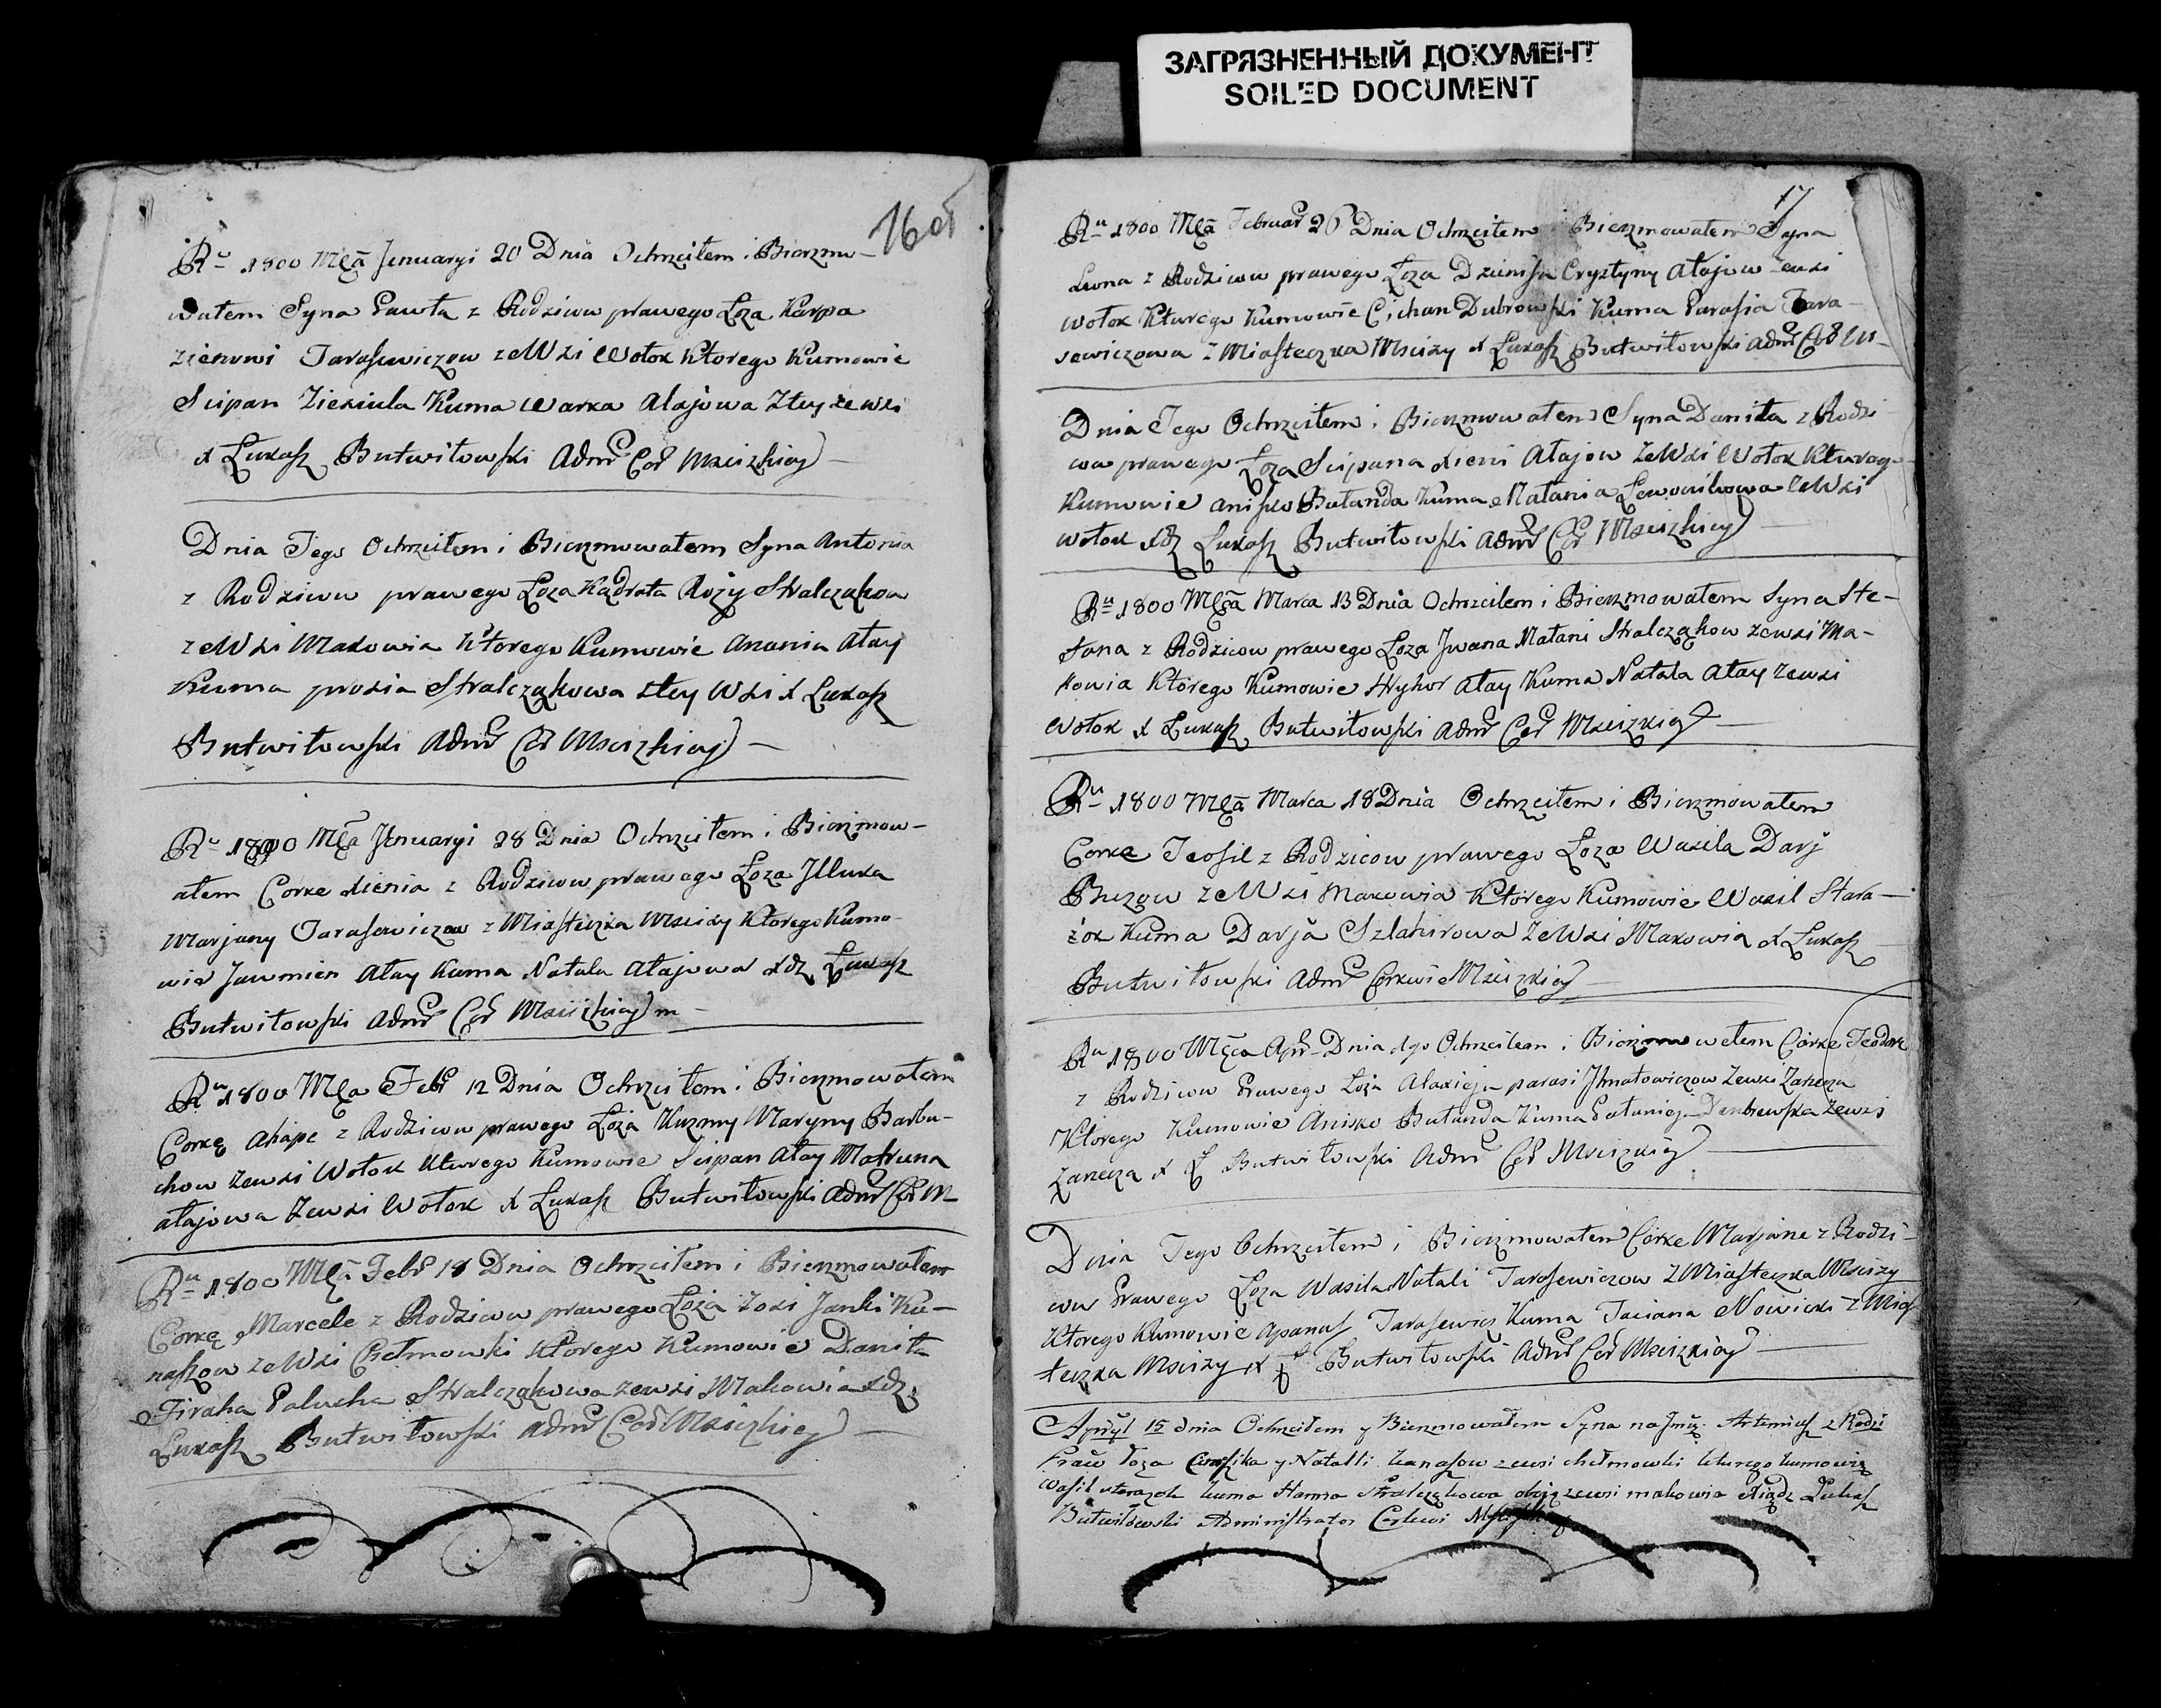 ЗАГРЯЗНЕННЫЙ ДОКУМЕНТ
SOILED DOCUMENT
16 об
Ru 1800 Mca Jenuaryi 20 Dnia Ochrzciłem i Bierzmo-
wałem Syna Pawła z Rodzicow prawego Łoża Karpa
Zienowi Tarasewiczow ze Wsi Wołok Ktorego Kumowie
Scipan Zieziula Kuma Warka Ałajowa Ztey ze wsi
X Łukasz Butwiłowski Admr Cer Mscizkiey
Dnia Tego Ochrzciłem i Bierzmowałem Syna Antonia
z Rodzicow prawego Łoża Kądrata Rozy Stralcząkow
ze Wsi Makowia Ktorego Kumowie Anania Ałay
Kuma prosia Stralcząkowa ztey Wsi X Łukasz
Butwiłowski Admr Cer Mscizkiey
Ru 1800 Mca Jenuaryi 28 Dnia Ochrzciłem i Bierzmow-
ałem Corke Xienia z Rodzicow prawego Łoża Jlluka
Marjany Tarasewiczow z Miasteczka Mscizy Ktorego Kumo-
wie Jawmien Ałay Kuma Natala Ałajowa Xdz Łukasz
Butwiłowski Admr Cer Mscizkiey m
Ru 1800 Mca Febr 12 Dnia Ochrzciłem i Bierzmowałem
Corkę Ahape z Rodzicow prawego Łoża Kuzmy Maryny Barbu-
chow zewsi Wołok Kturego Kumowie Scipan Ałay Matruna
ałajowa Zewsi Wołok X Łukasz Butwiłowski Admr Cer M
Ru 1800 Mca Febr 18 Dnia Ochrzciłem i Bierzmowałem
Corkę Marcele z Rodzicow prawego Łoża Janki Ku-
naszow ze Wsi Chełmowki Ktorego Kumowie Daniła
Firaha Palucha Stralcząkowa zewsi Makowia Xdz
Łukasz Butwiłowski Admr Cer Mscizkiey
17
Ru 1800 Mca Februar 26 Dnia Ochrzciłem i Bierzmowałem Syna
Leona z Rodzicow prawego Łoża Dzienisa Crystyny Ałajow Zewsi
Wołok Kturego Kumowie Cichan Dubrowski Kuma Parasia Tara-
sewiczowa z Miasteczka Mscizy X Łukasz Butwiłowski Admr Cer M
Dnia Tego Ochrzciłem i Bierzmowałem Syna Daniła z Rodzi
cow prawego Łoża Scipana Xieni Ałajow ze Wsi Wołok Kturego
Kumowie Anisko Butanda Kuma Natania ze Wsi
Wołok Xdz Łukasz Butwiłowski Admr Cer Mscizkiey
Ru 1800 Mca Marca 13 Dnia Ochrzciłem i Bierzmowałem Syna Ste-
fana z Rodzicow prawego Łoża Jwana Natani Stralcząkow zewsi Ma-
kowia Ktorego Kumowie Hryhor Ałay Kuma Natala Ałay zewsi
Wołok X Łukasz Butwiłowski Admr Cer Mscizkiey
Ru 1800 Mca Marca 18 Dnia Ochrzciłem i Bierzmowałem
Corke Teofil z Rodzicow prawego Łoża Wasila Darj
Buzow ze Wsi Makowia Ktorego Kumowie Wasil Stara-
żok Kuma Darja Szlahirowa ze Wsi Makowia X Łukasz
Butwiłowski Admr Cerkwie Mscizkiey
Ru 1800 Mca Apr Dnia Ochrzciłem i Bierzmowałem Corke Teodore
z Rodzicow Prawego Łoża Alaxieja parasi Jhnatowiczow Zewsi Zarecza
Ktorego Kumowie Anisko Butanda Kuma zewsi
Zarecza X Ł Butwiłowski Admr Cer Mscizkiey
Dnia Tego Ochrzciłem i Bierzmowałem Corke Marjane z Rodzi-
cow Prawego Łoża Wasila Natali Tarasewiczow z Miasteczka Mscizy
Ktorego Kumowie Apanas Tarasewicz Kuma Taciana Nowicki z Mias
teczka Mscizy X Ł Butwiłowski Admr Cer Mscizkiey
Apryl 15 dnia Ochrzciłem y Bierzmowałem Syna na Jmie Artemiusz z Rodzi
Praw łoża y Natalli kunaszow zewsi chełmowki kturego kumowie
Wasil starazok kuma Hanna Stralcząkowa zewsi makowia Xiądz Łukasz
Butwiłowski Administrator Cerkwi